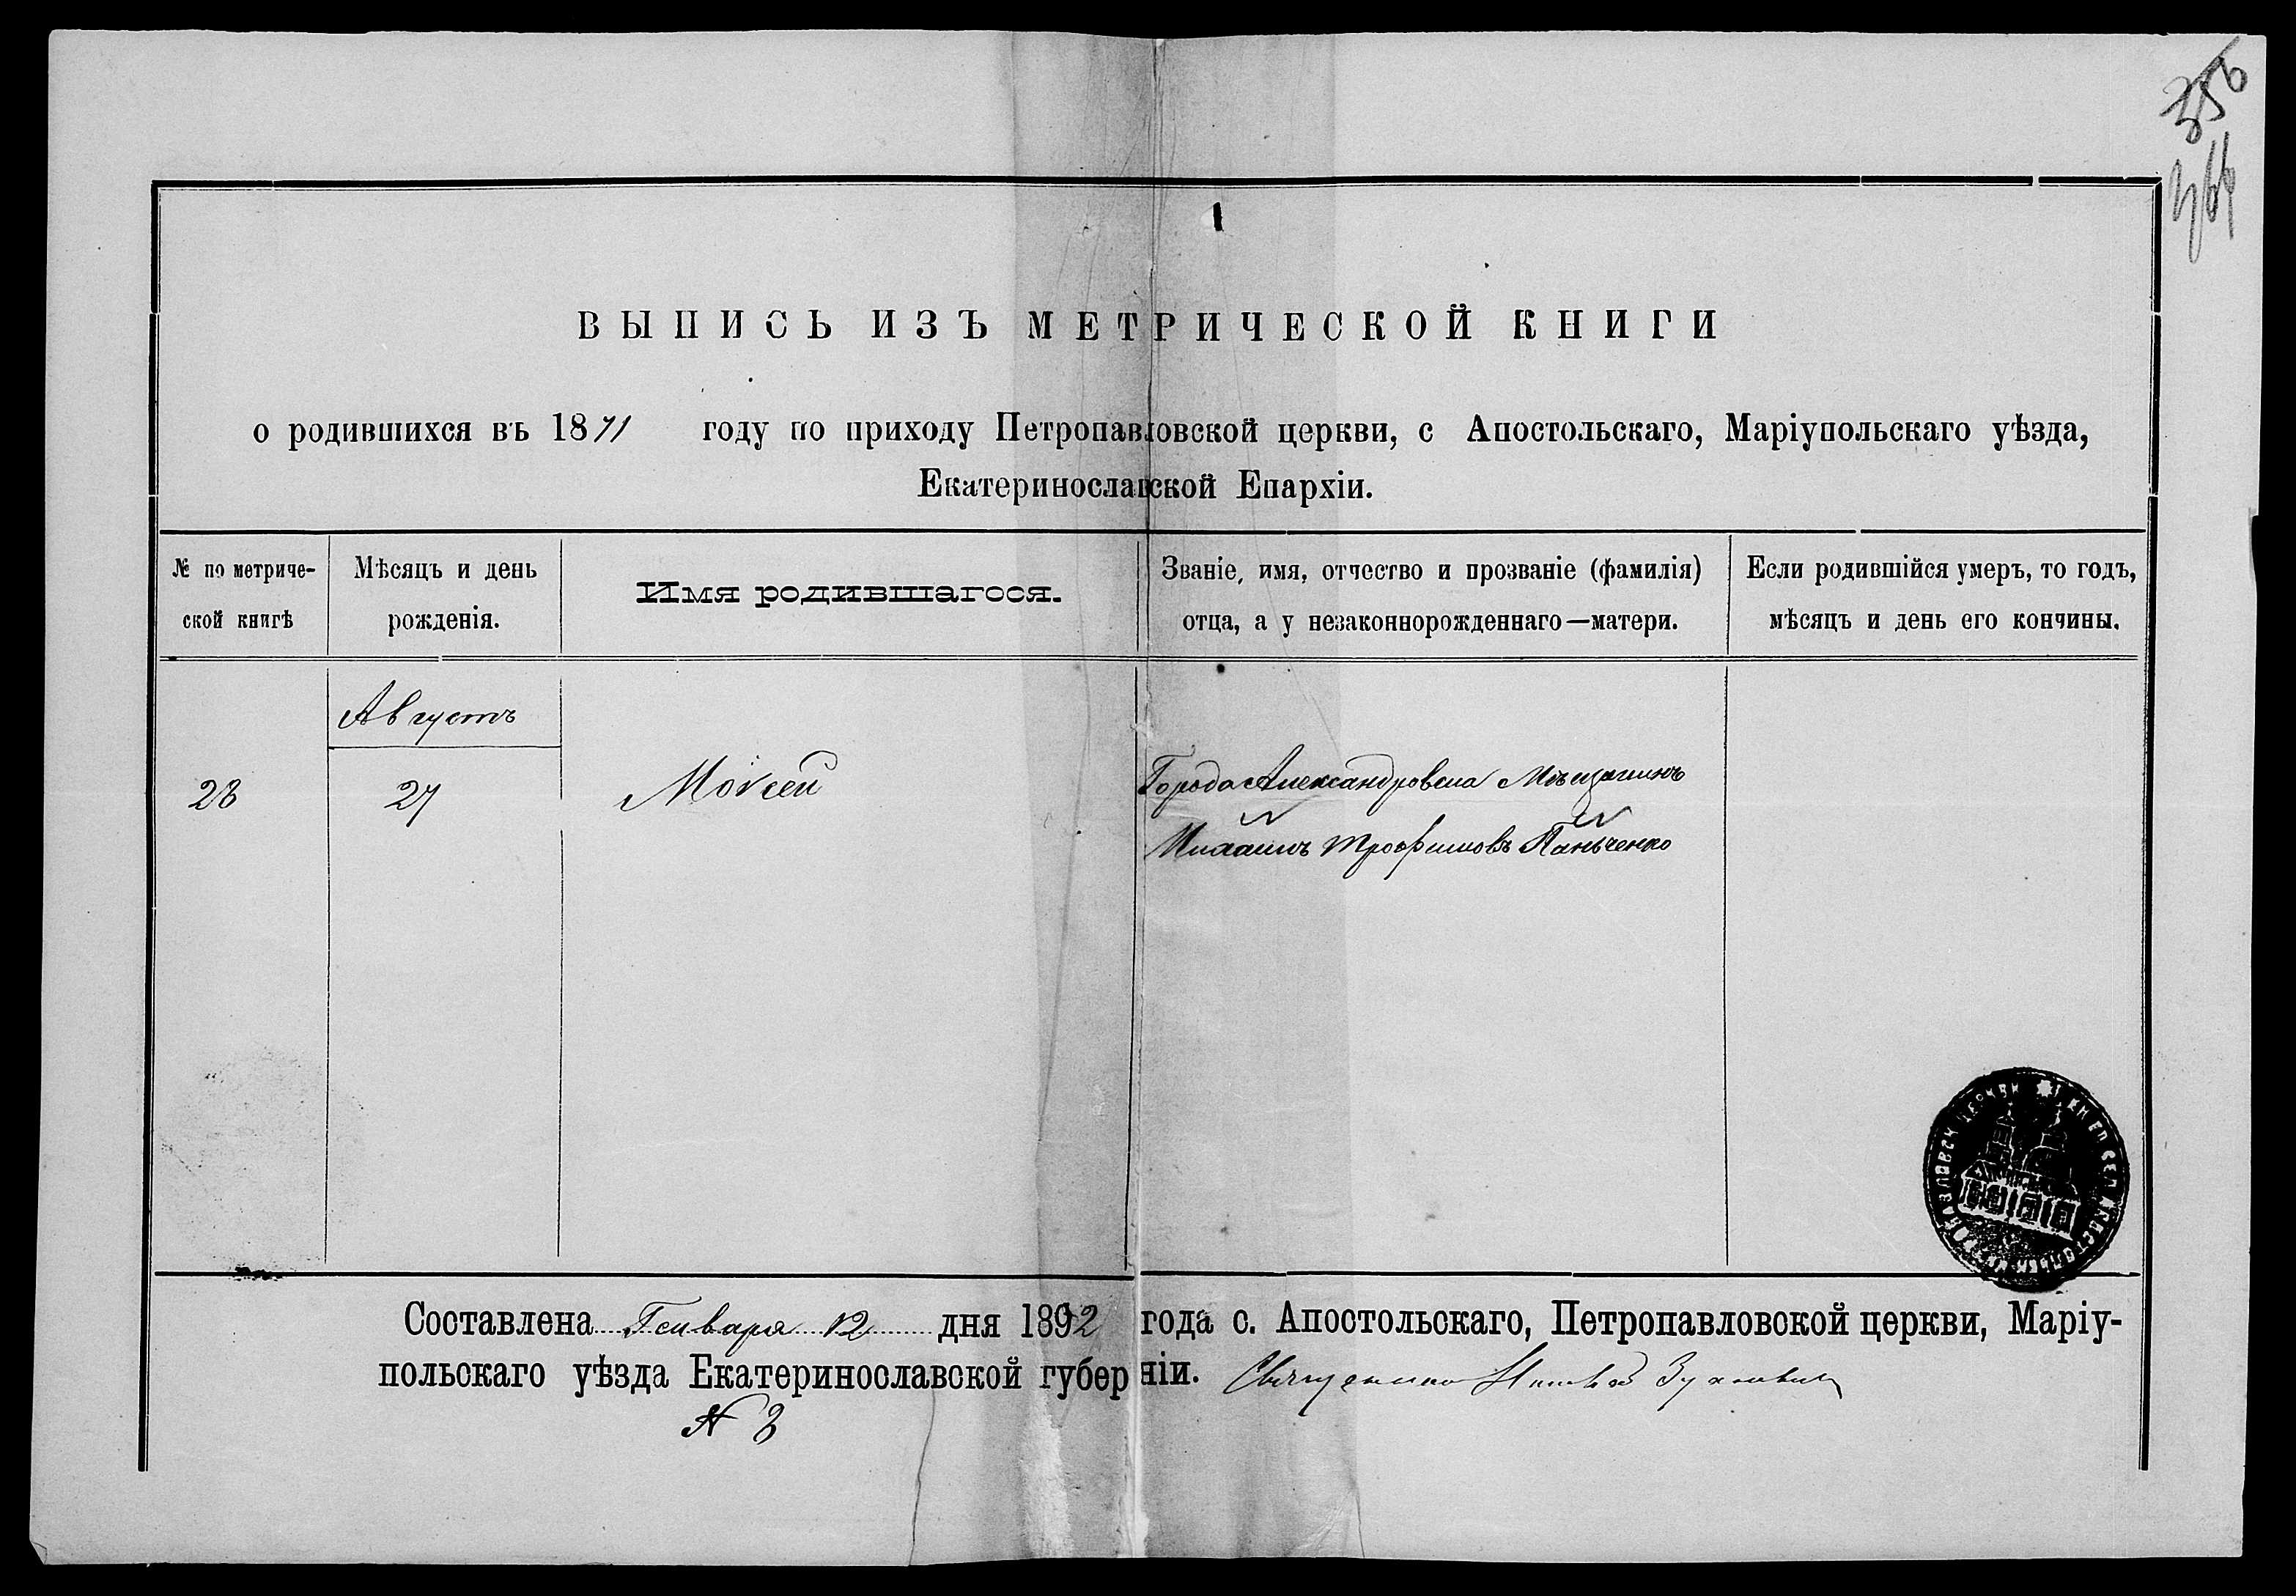 356
ВЫПИСЬ ИЗЪ МЕТРИЧЕСКОЙ КНИГИ
о родившихся въ 1871 году по приходу Петропавловской церкви, с Апостольскаго, Маріупольскаго уѣзда,
Екатеринославской Епархіи.
№ по метриче-
ской книгѣ
Мѣсяцъ и день
рожденія.
Имя родившагося.
Званіе, имя, отчество и прозваніе (фамилія)
отца, а у незаконнорожденнаго—матери.
Если родившійся умеръ, то годъ,
мѣсяцъ и день его кончины.
Августъ
28
27
Моѵсей
Города Александровска Мѣщанинъ
Михаилъ Трофимовъ Паньченко
Составлена Генваря 12 дня 1892 года с. Апостольскаго, Петропавловской церкви, Маріу-
польскаго уѣзда Екатеринославской губерніи. Священникъ
№ 3